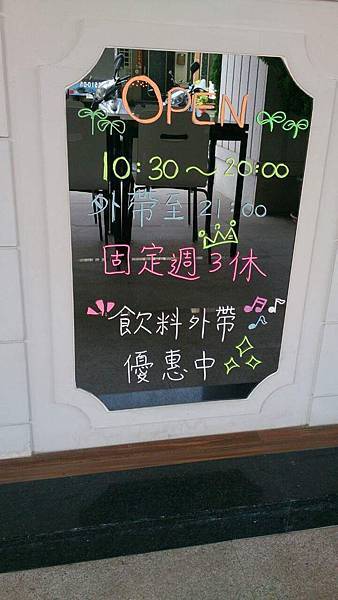 OPEN
10:30～20:00
外帶至 21:00
固定週3休
飲料外帶
優惠中